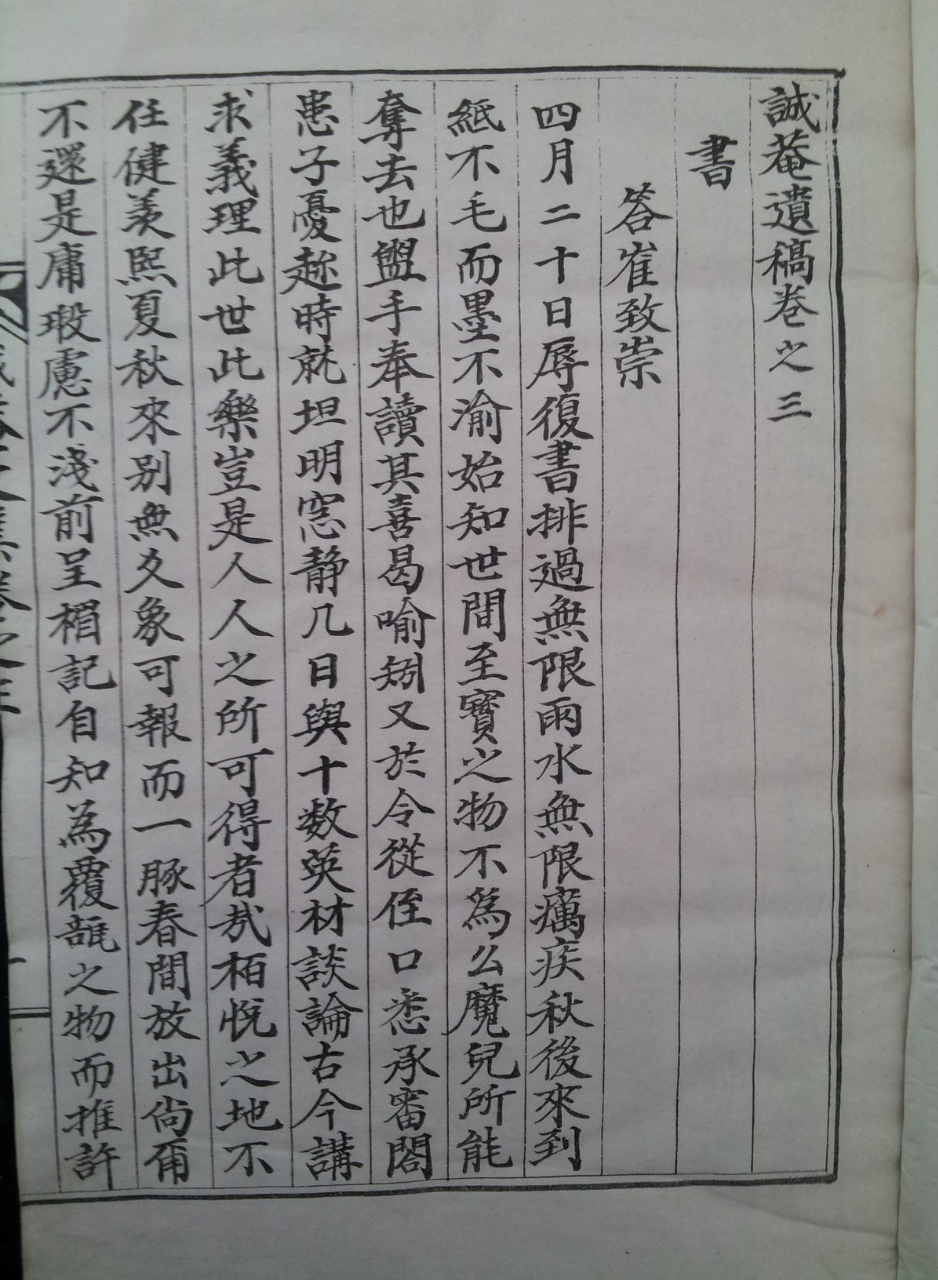 誠菴遺稿卷之三
書
答崔致崇
四月二十日辱復書排過無限雨水無限癘疾秋後來到
紙不毛而墨不渝始知世間至寶之物不爲么魔兒所能
奪去也盥手奉讀其喜曷喻矧又於令從侄口悉承審閤
患子憂趂時就坦明窓静几日與十数英材談論古今講
求義理此世此樂豈是人人之所可得者㢤栢悅之地不
任健羨熙夏秋來别無久象可報而一豚春間放出尙甭
不還是庸瑕慮不淺前呈楣記自知為覆瓿之物而推許